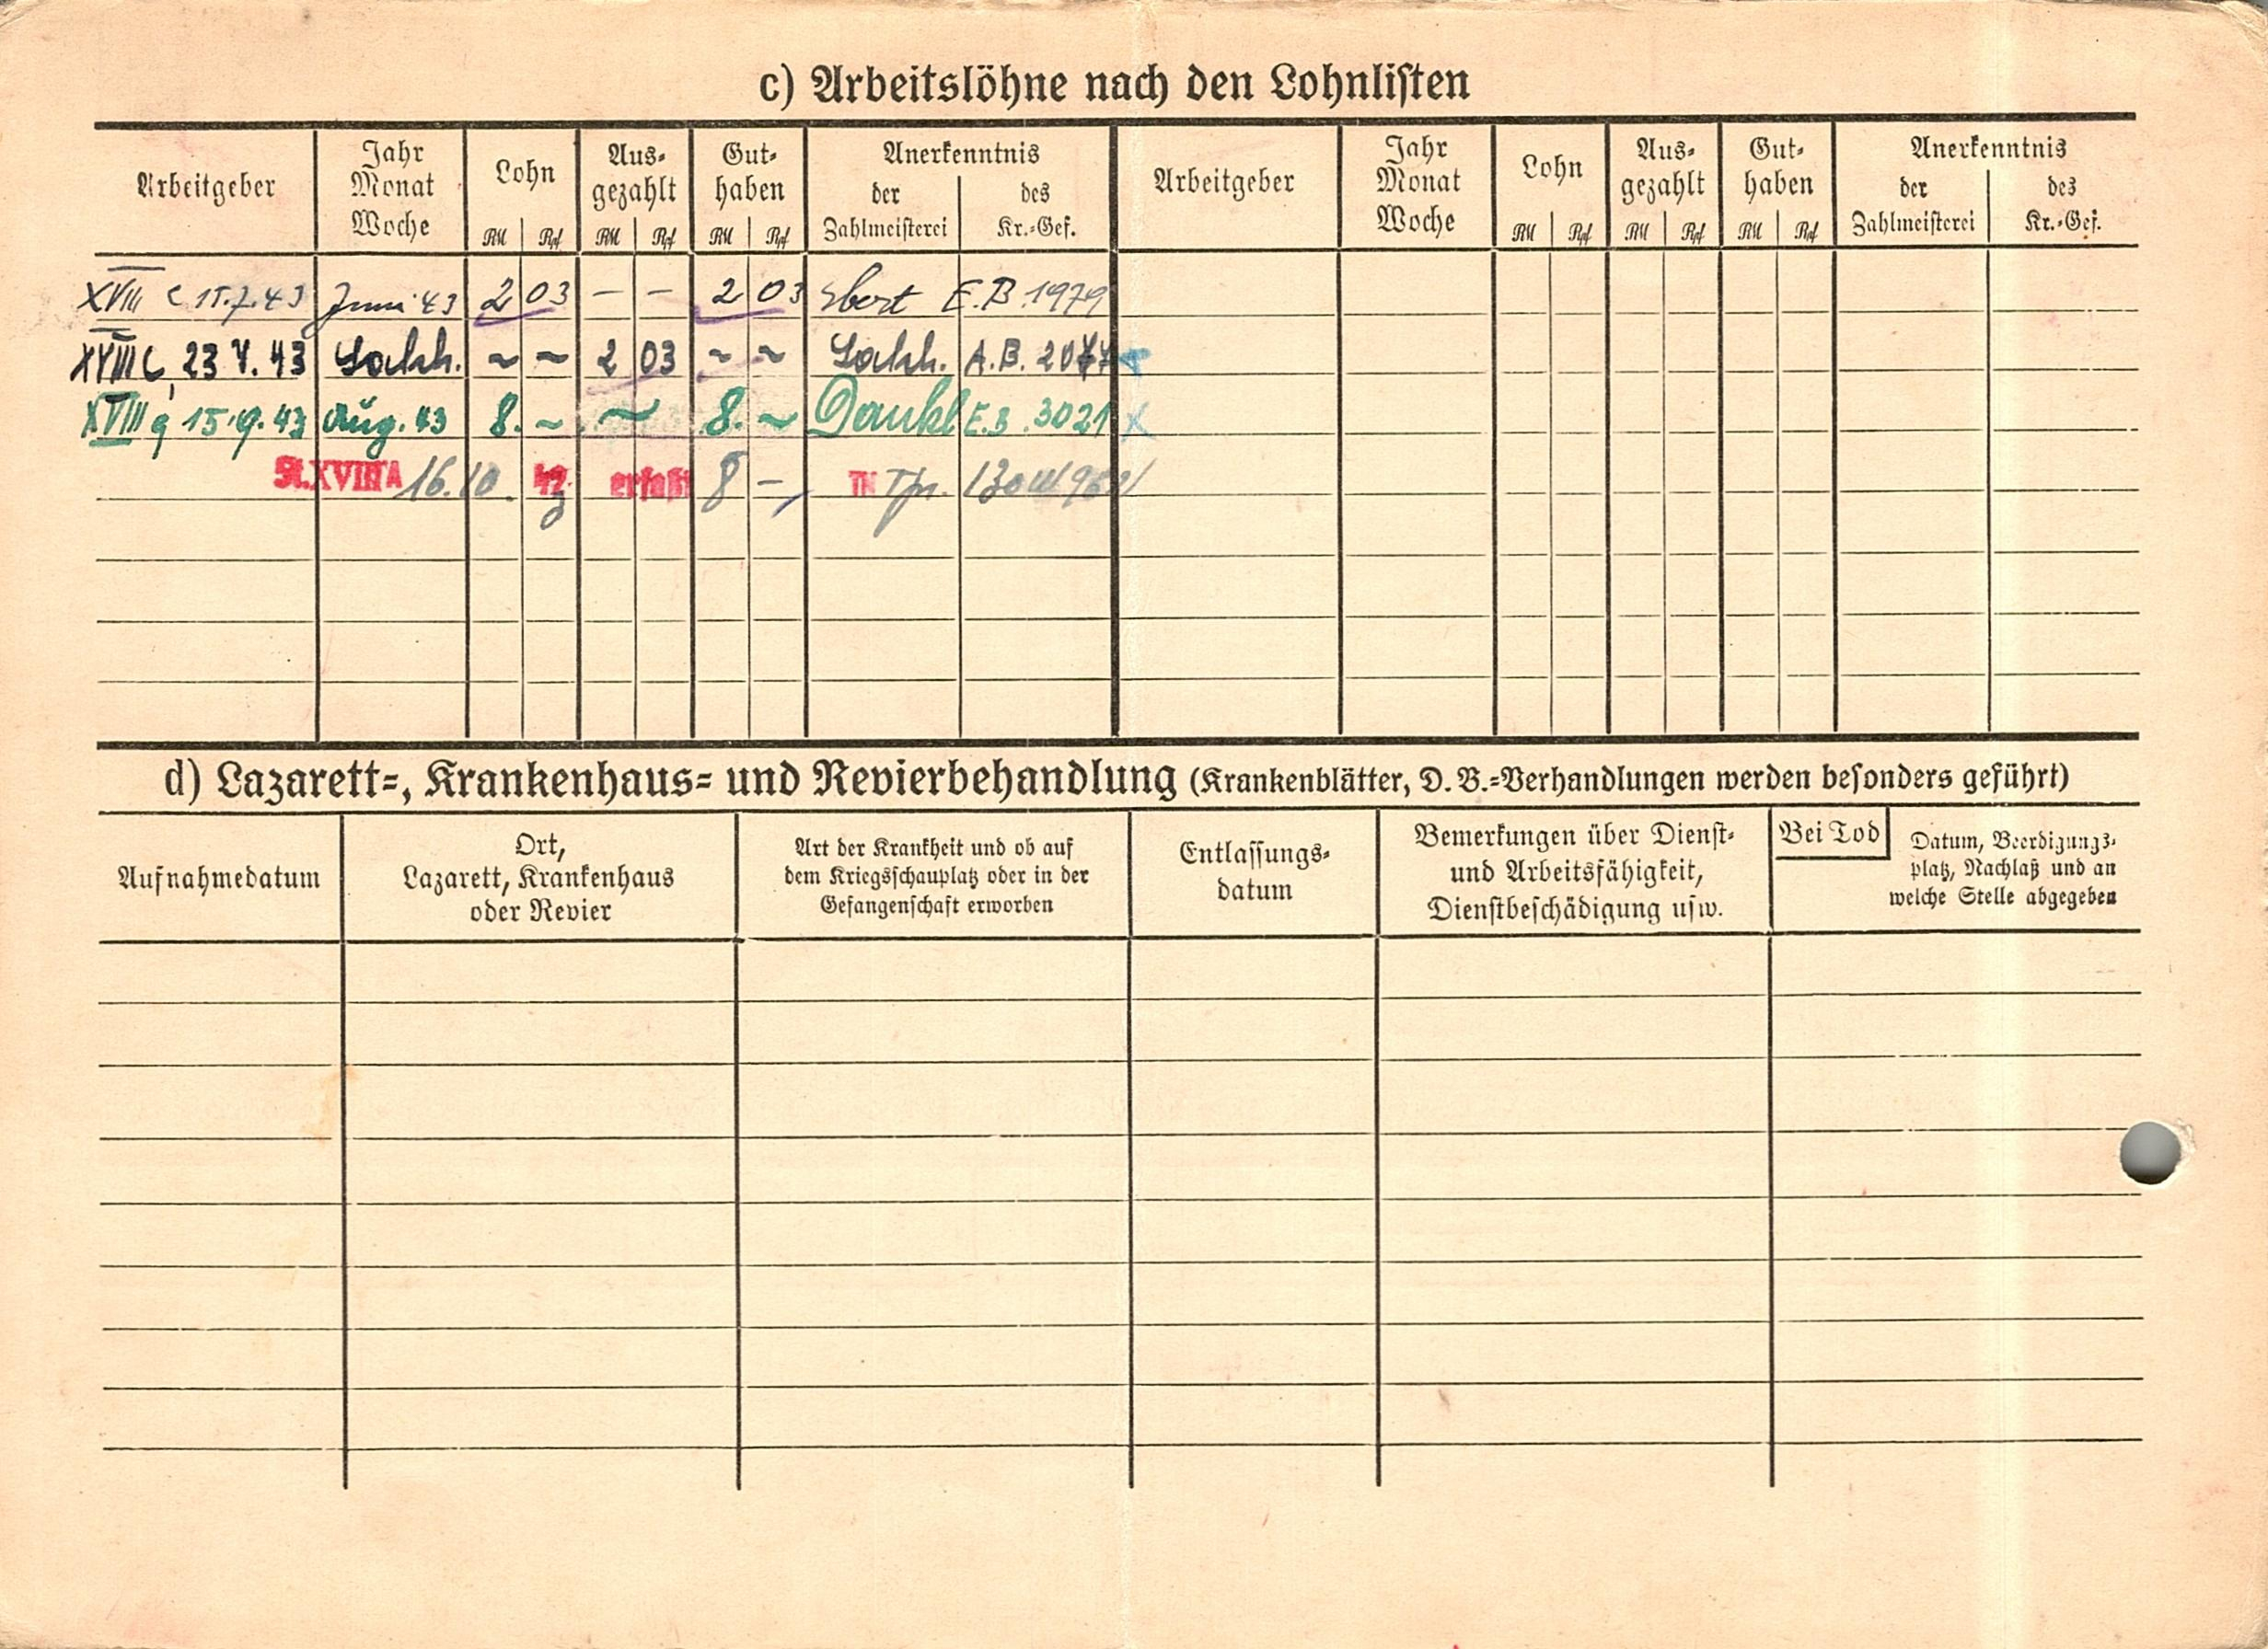 c) Arbeitslöhne nach den Lohnlisten
Arbeitgeber Jahr Monat Woche Lohn Aus- gezahlt Gut- haben Anerkenntnis Arbeitgeber Jahr Monat Woche Lohn Aus- gezahlt Gut- haben Anerkenntnis
der Zahlmeisterei des Kr.-Gef. der Zahlmeisterei des Kr.-Gef.
RM Rpf RM Rpf RM Rpf RM Rpf RM Rpf RM Rpf
XVIII C 15.7.43 Juni 43 2 03 — — 2 03 Ebert E.B. 1979
XVIII C, 23 43 ~ ~ 2 03 ~ ~ A.B.
XVIII 15.9.43 Aug. 43 8. ~ ~ 8. ~ Dankl E.B. 3021 X
St.XVIII A 16.10. 43 erfaßt 8 —
d) Lazarett-, Krankenhaus- und Revierbehandlung (Krankenblätter, D. B.-Verhandlungen werden besonders geführt)
Aufnahmedatum
Ort,
Lazarett, Krankenhaus
oder Revier
Art der Krankheit und ob auf
dem Kriegsschauplatz oder in der
Gefangenschaft erworben
Entlassungs-
datum
Bemerkungen über Dienst-
und Arbeitsfähigkeit,
Dienstbeschädigung usw.
Bei Tod
Datum, Beerdigungs-
platz, Nachlaß und an
welche Stelle abgegeben